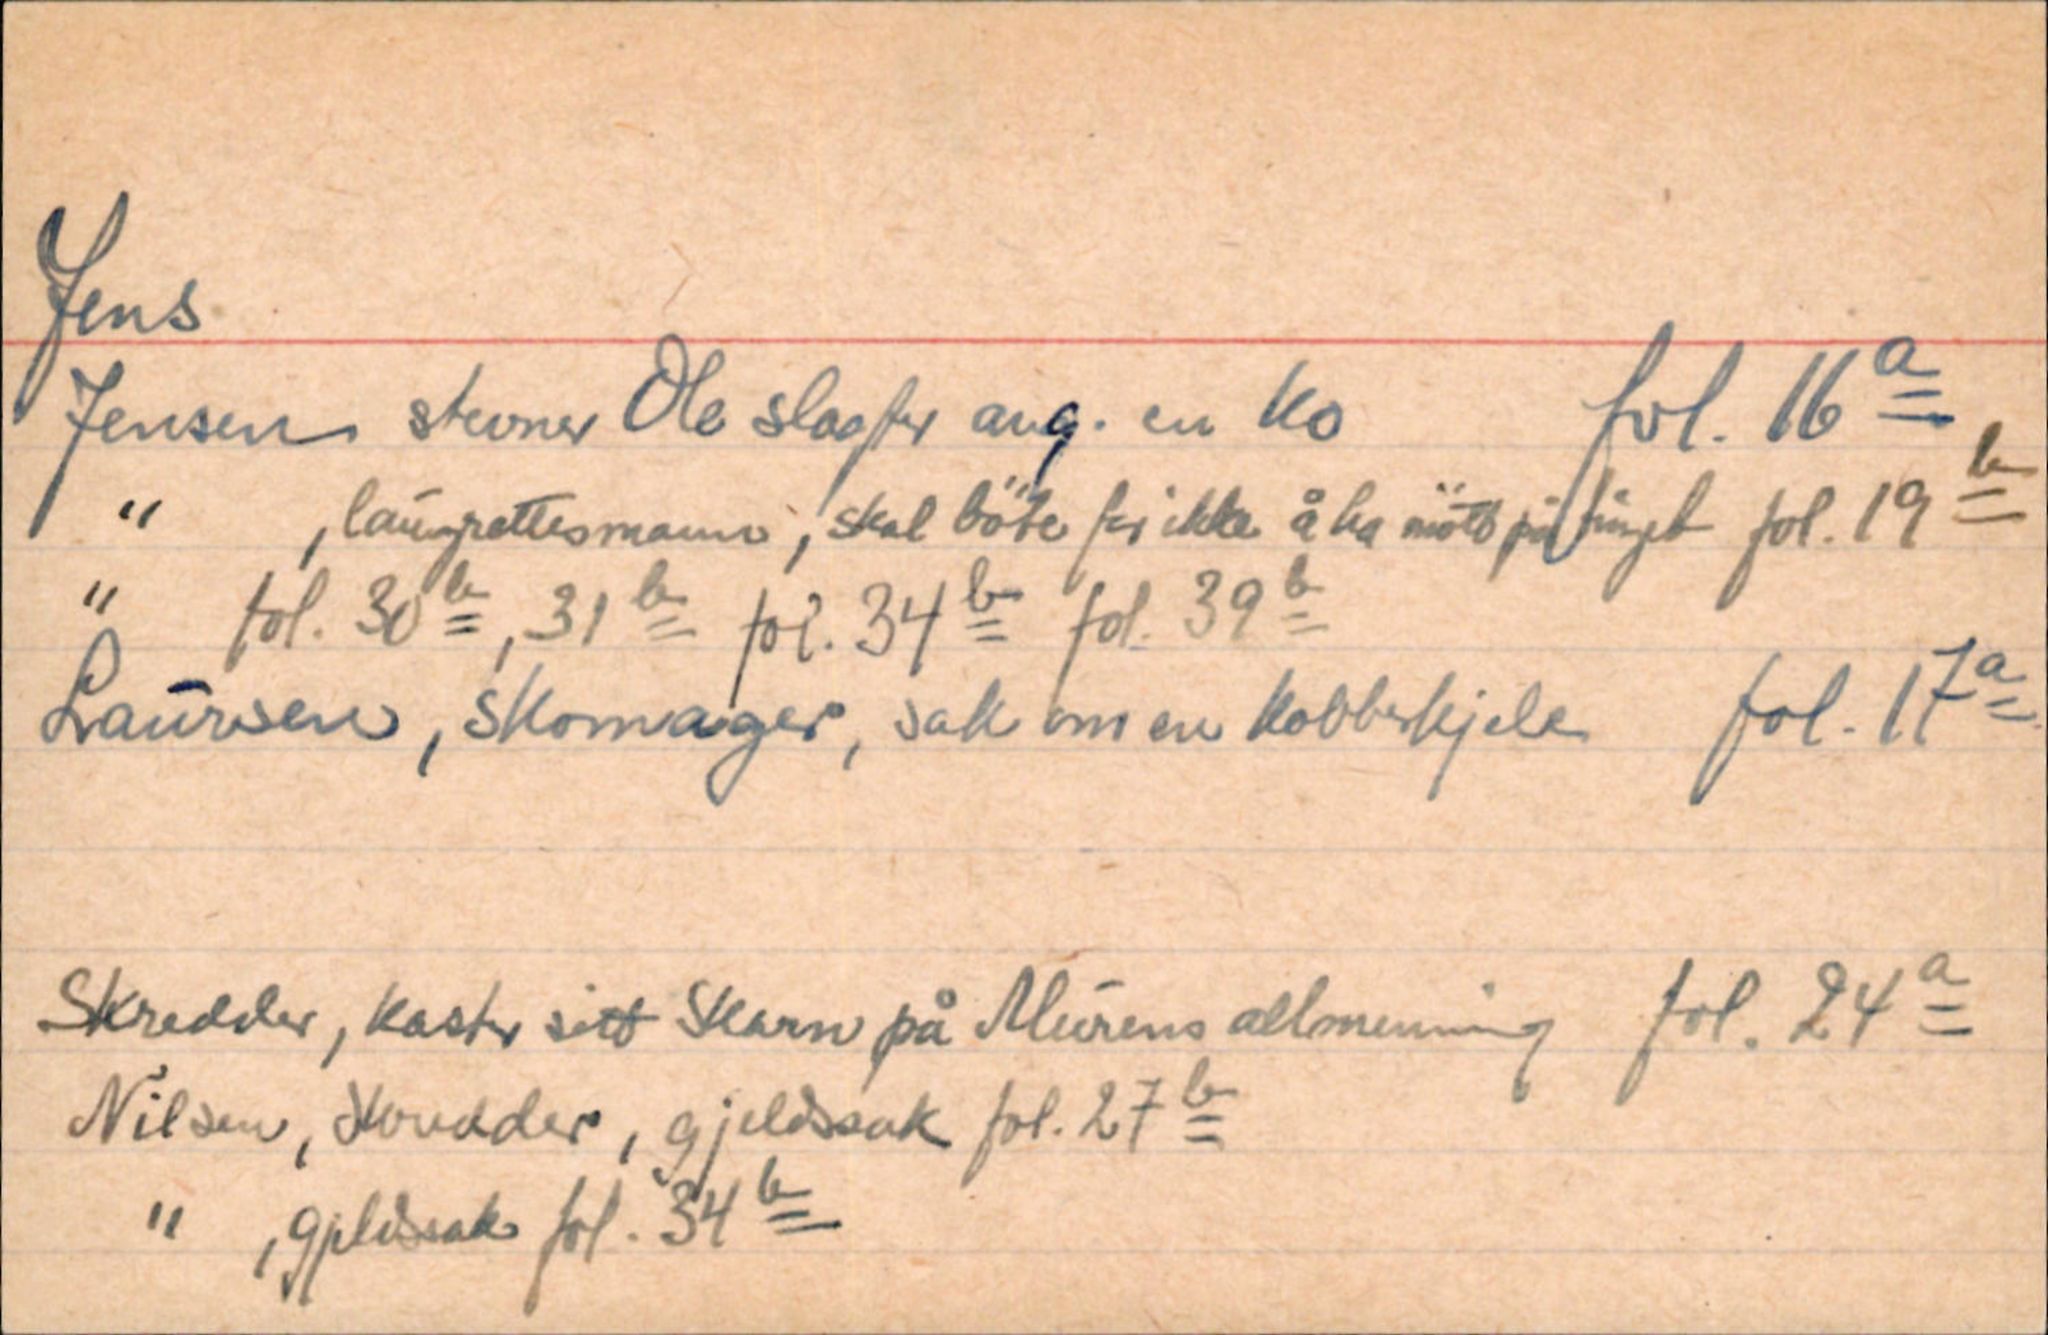 Jens
Jensen stevner Ole slagter ang. en ko fol. 16a
" , laugrettesmann, skal böte for ikke å ha mött på tinget fol. 19b
" fol. 30b, 31b fol. 34b fol. 39b
Laursen, skomager, sak om en kobberkjele fol. 17a
Skredder, kaster sitt skarn på Murens allmenning fol. 24a
Nilsen, skredder, gjeldssak fol. 27b
" , gjeldssak fol. 34b